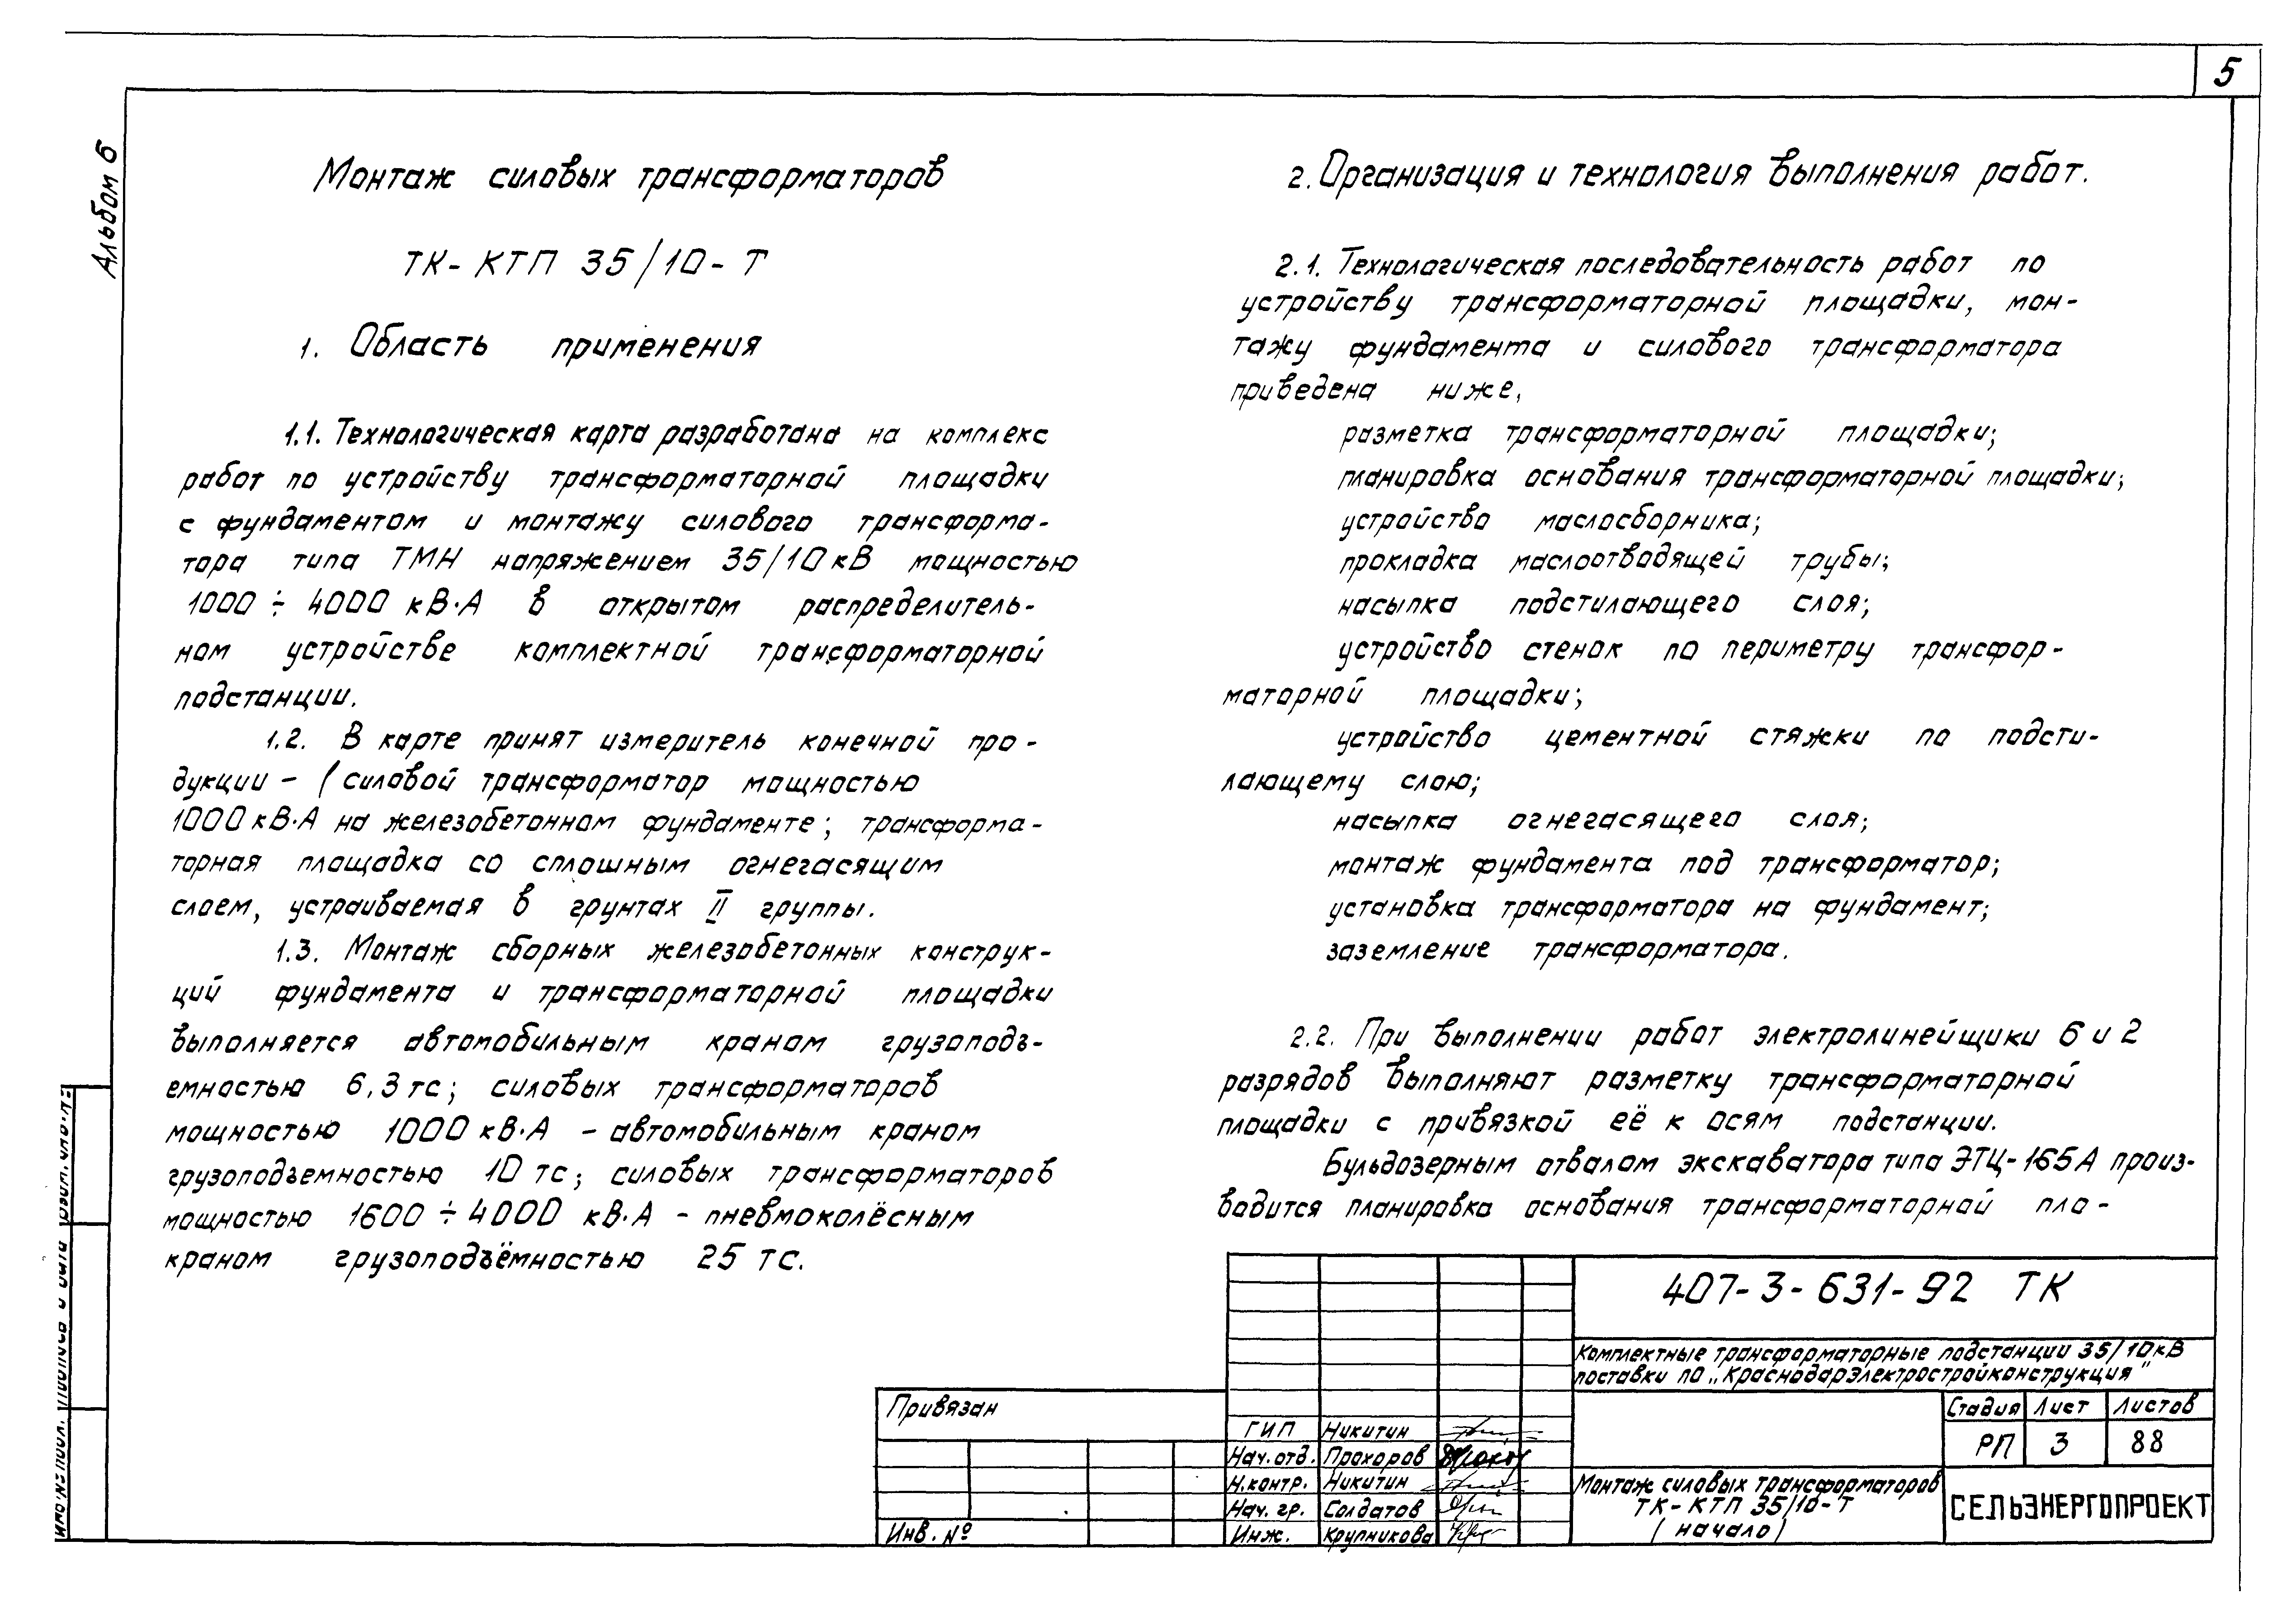 5
Альбом 6
Монтаж силовых трансформаторов
ТК-КТП 35/10-Т
1. Область применения
1.1. Технологическая карта разработана на комплекс
работ по устройству трансформаторной площадки
с фундаментом и монтажу силового трансформа-
тора типа ТМН напряжением 35/10 кВ мощностью
1000 ÷ 4000 кВ·А в открытом распределитель-
ном устройстве комплектной трансформаторной
подстанции.
1.2. В карте принят измеритель конечной про-
дукции - (силовой трансформатор мощностью
1000 кВ·А на железобетонном фундаменте; трансформа-
торная площадка со сплошным огнегасящим
слоем, устраиваемая в грунтах II группы.
1.3. Монтаж сборных железобетонных конструк-
ций фундамента и трансформаторной площадки
выполняется автомобильным краном грузоподъ-
емностью 6,3 тс; силовых трансформаторов
мощностью 1000 кВ·А - автомобильным краном
грузоподъемностью 10 тс; силовых трансформаторов
мощностью 1600 ÷ 4000 кВ·А - пневмоколёсным
краном грузоподъёмностью 25 тс.
2. Организация и технология выполнения работ.
2.1. Технологическая последовательность работ по
устройству трансформаторной площадки, мон-
тажу фундамента и силового трансформатора
приведена ниже,
разметка трансформаторной площадки;
планировка основания трансформаторной площадки;
устройство маслосборника;
прокладка маслоотводящей трубы;
насыпка подстилающего слоя;
устройство стенок по периметру трансфор-
маторной площадки;
устройство цементной стяжки по подсти-
лающему слою;
насыпка огнегасящего слоя;
монтаж фундамента под трансформатор;
установка трансформатора на фундамент;
заземление трансформатора.
2.2. При выполнении работ электролинейщики 6 и 2
разрядов выполняют разметку трансформаторной
площадки с привязкой её к осям подстанции.
Бульдозерным отвалом экскаватора типа ЭТЦ-165А произ-
водится планировка основания трансформаторной пло-
407-3-631-92 ТК
Комплектные трансформаторные подстанции 35/10кВ
поставки по „Краснодарэлектростройконструкция"
Привязан
Инв. №
ГИП Никитин
Нач.отд. Прохоров
Н.контр. Никитин
Нач. гр. Солдатов
Инж. Крупникова
Стадия Лист Листов
РП 3 88
Монтаж силовых трансформаторов
ТК-КТП 35/10-Т
(начало)
СЕЛЬЭНЕРГОПРОЕКТ